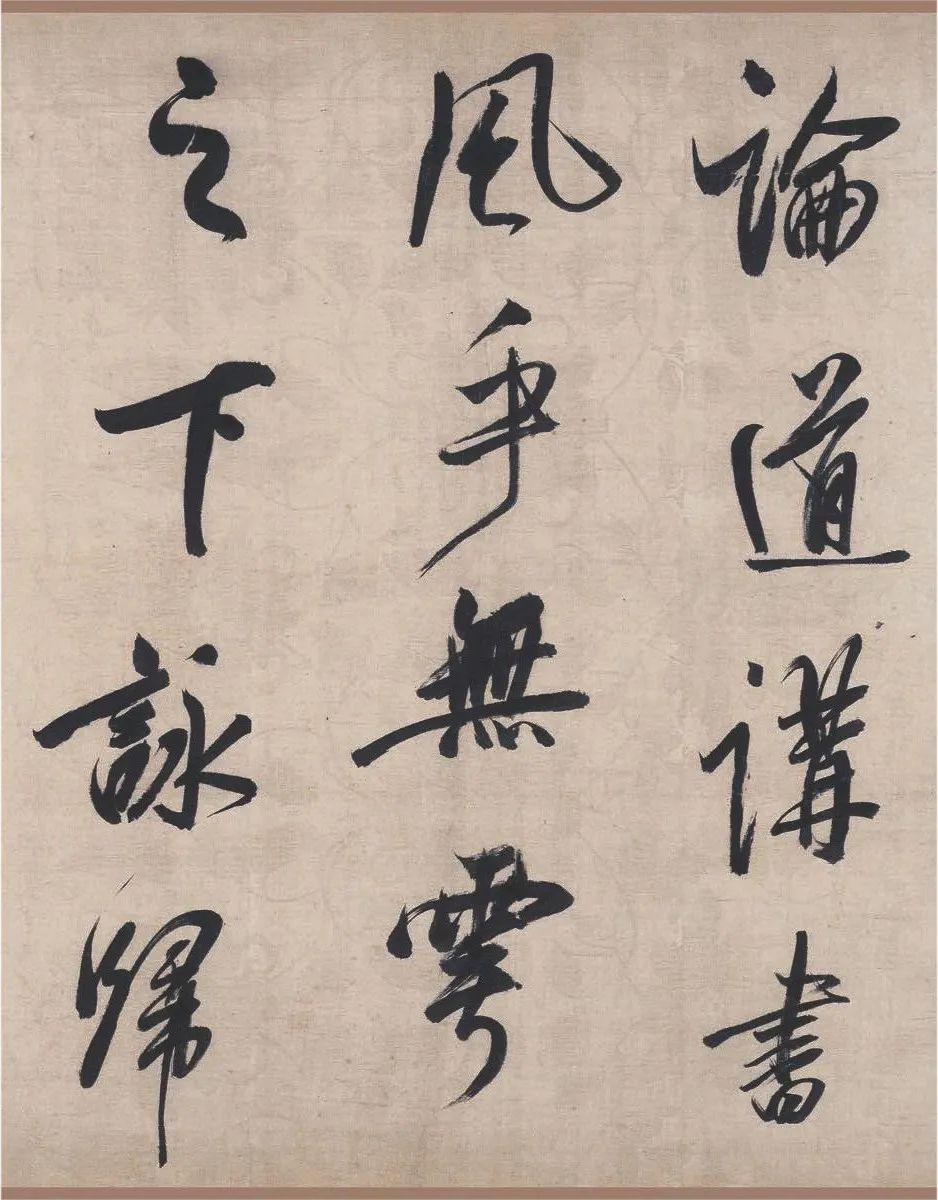 論道講書
風乎無雩
之下詠歸